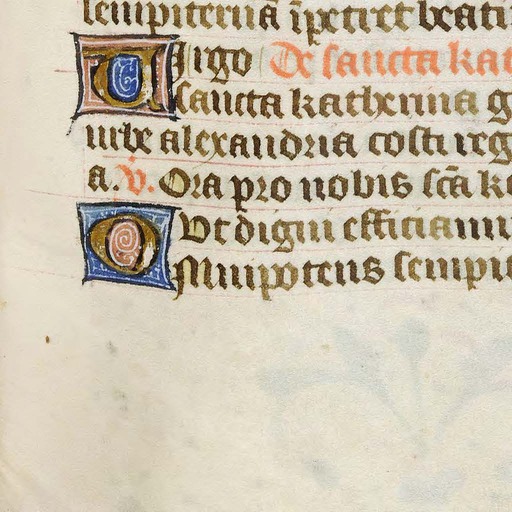 sempiternā īpetret beati
Uirgo De sancta kat
sancta katherina g
urbe alexandria costi reg
a. V. Ora pro nobis scā k
Ut digni efficiam
Omnipotens sempi